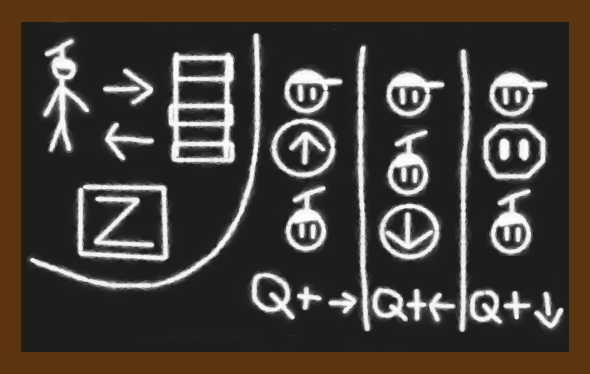 Z
Q+→ Q+← Q+↓